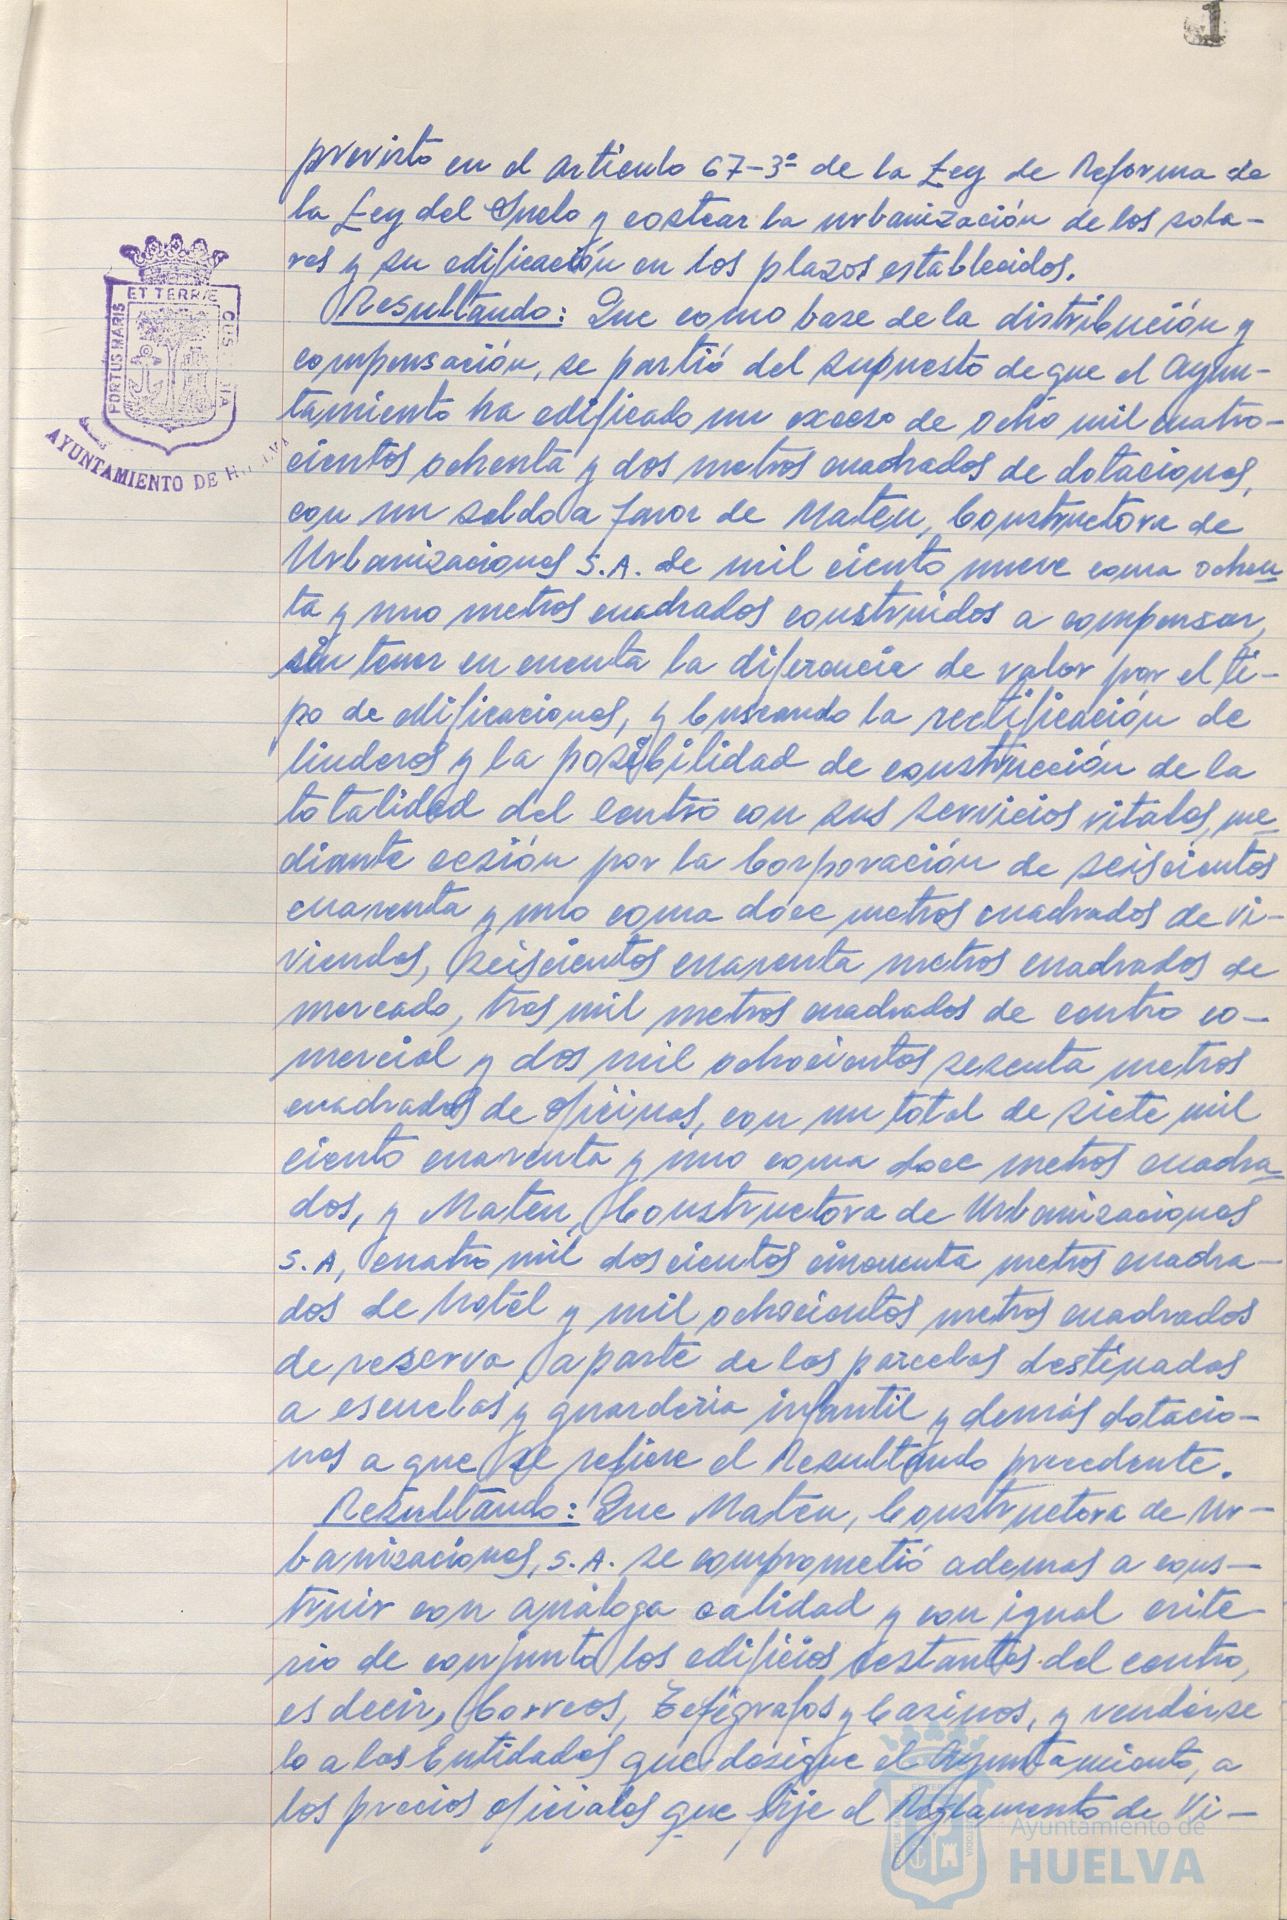 1
previsto en el artículo 67-3º de la Ley de Reforma de
la Ley del Suelo y costear la urbanización de los sola-
res y su edificación en los plazos establecidos.
Resultando: Que como base de la distribución y
compensación, se partió del supuesto de que el Ayun-
tamiento ha edificado un exceso de ocho mil cuatro-
cientos ochenta y dos metros cuadrados de dotaciones,
con un saldo a favor de Mateu, Constructora de
Urbanizaciones S.A. de mil ciento nueve coma ochen-
ta y uno metros cuadrados construidos a compensar,
sin tener en cuenta la diferencia de valor por el ti-
po de edificaciones, y buscando la rectificación de
linderos y la posibilidad de construcción de la
totalidad del centro con sus servicios vitales, me-
diante cesión por la Corporación de seiscientos
cuarenta y uno coma doce metros cuadrados de vi-
viendas, seiscientos cuarenta metros cuadrados de
mercado, tres mil metros cuadrados de centro co-
mercial y dos mil ochocientos sesenta metros
cuadrados de oficinas, con un total de siete mil
ciento cuarenta y uno coma doce metros cuadra-
dos, y Mateu, Constructora de Urbanizaciones
S.A, cuatro mil doscientos cincuenta metros cuadra-
dos de hotel y mil ochocientos metros cuadrados
de reserva, aparte de las parcelas destinadas
a escuelas y guardería infantil y demás dotacio-
nes a que se refiere el Resultando precedente.
Resultando: Que Mateu, Constructora de Ur-
banizaciones, S.A. se comprometió ademas a cons-
truir con análoga calidad y con igual crite-
rio de conjunto los edificios restantes del centro,
es decir, Correos, Telégrafos y Casinos, y vendérse
lo a las Entidades que designe el Ayuntamiento, a
los precios oficiales que fije el Reglamento de Vi-
PORTUS MARIS ET TERRÆ CUSTODIA
AYUNTAMIENTO DE HUELVA
Ayuntamiento de
HUELVA